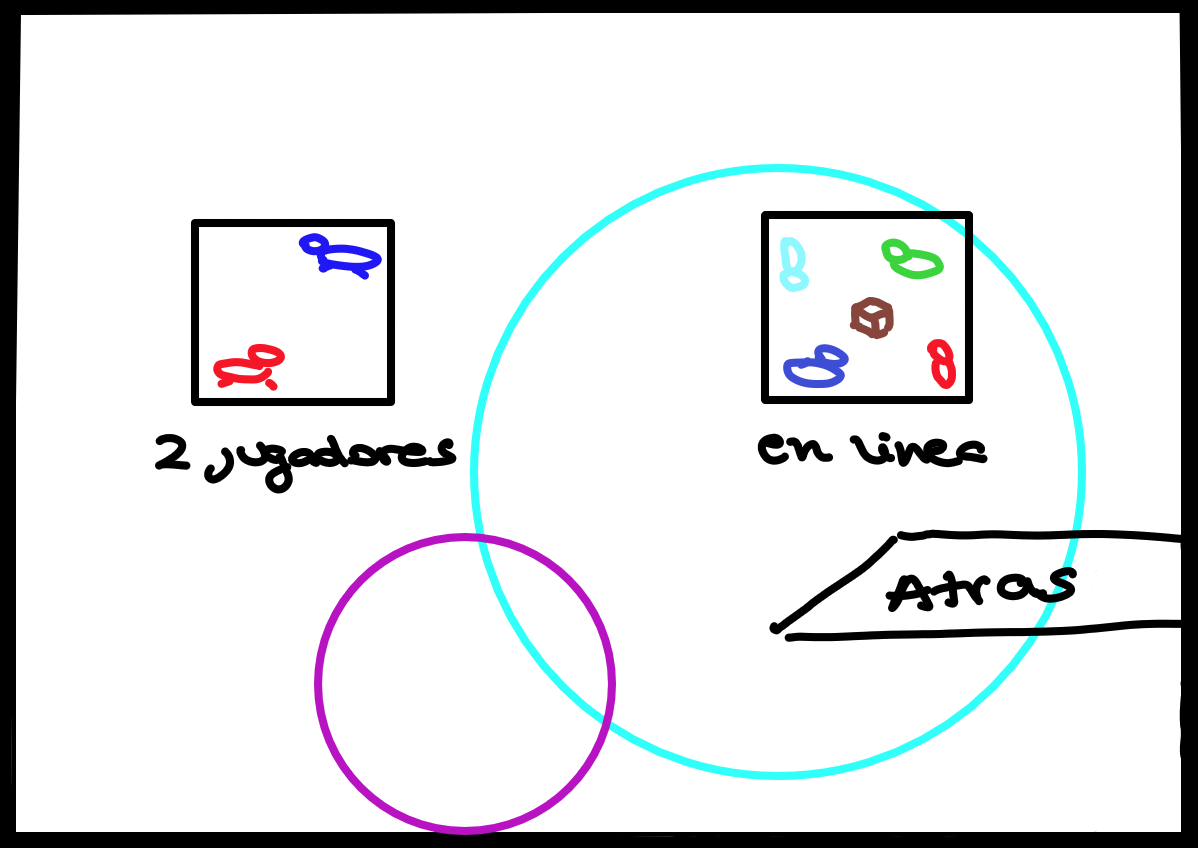 2 jugadores
en linea
Atras